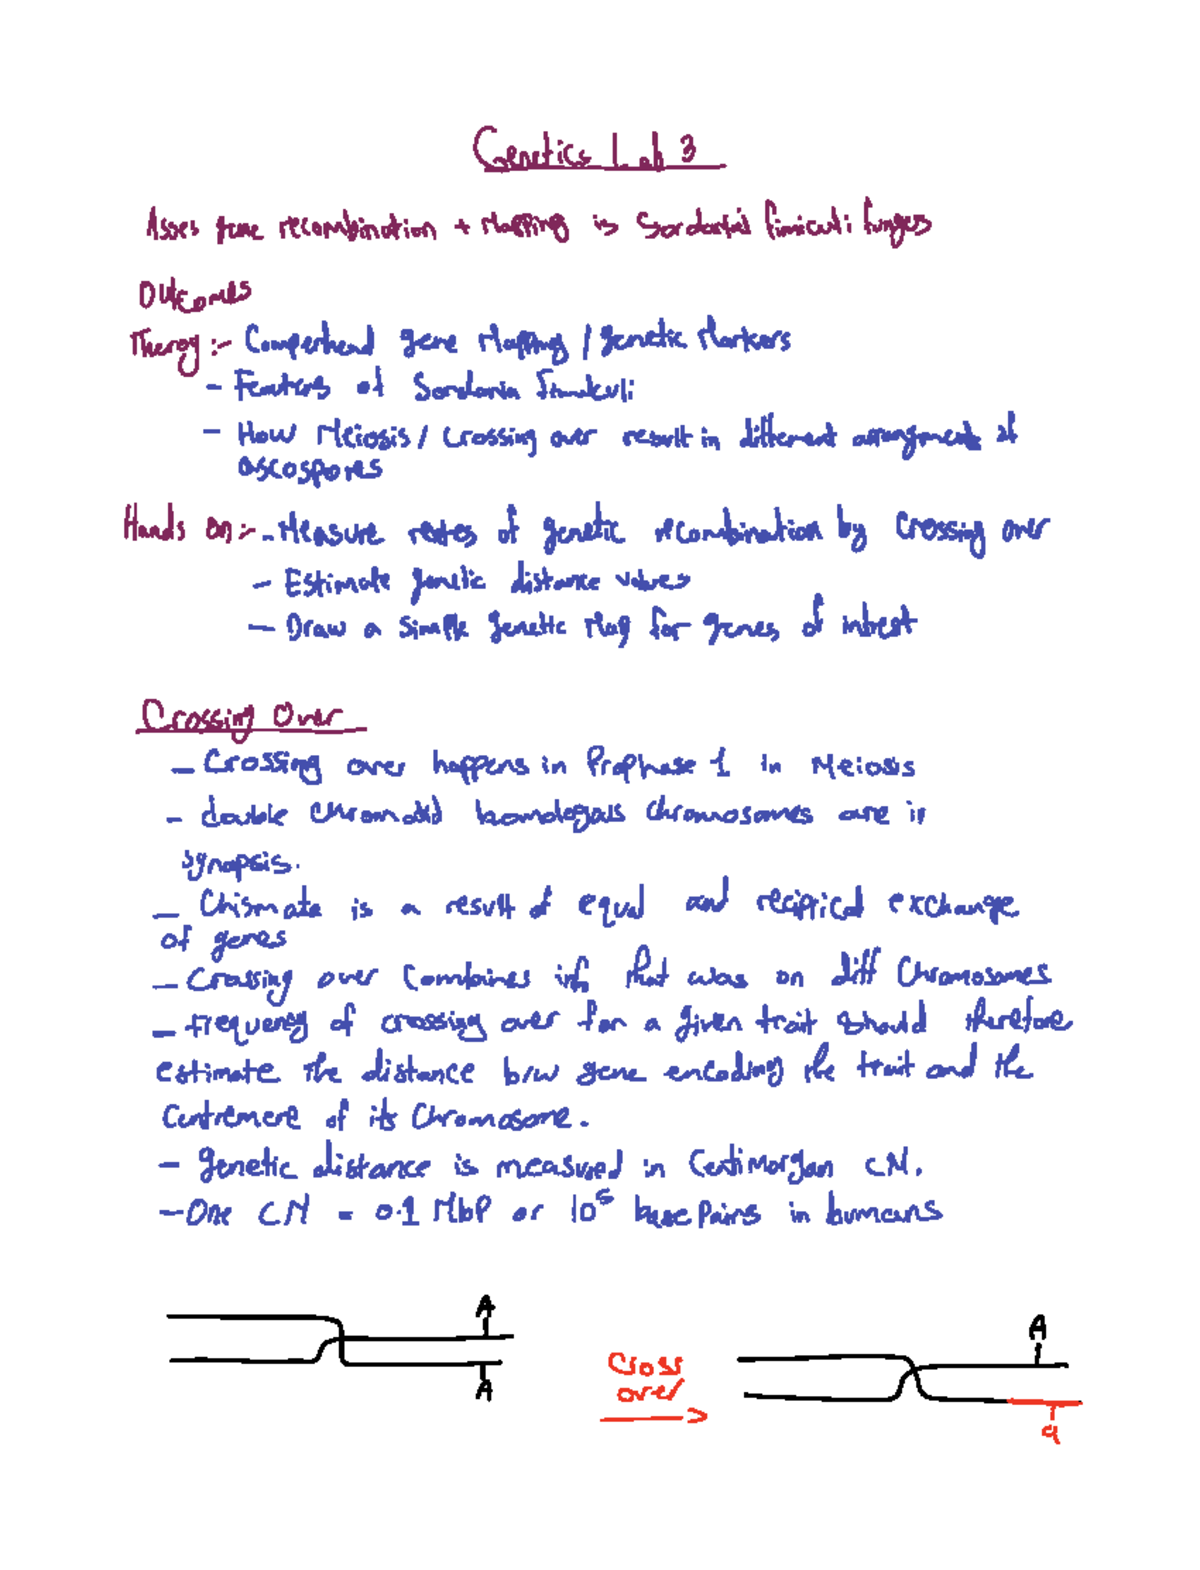 Genetics Lab 3
Asses gene recombination + Mapping is Sordaria fimiculi funges
Outcomes
Theroy :- Comperhead gene Mapping / genetic Markers
- Featurs of Sordaria fimikuli
- How Meiosis / crossing over result in different arrangments of
ascospores
Hands on :- - Measure rates of genetic recombination by crossing over
- Estimate genetic distance values
- Draw a simple genetic Map for genes of intrest
Crossing Over
- Crossing over happens in Prophase 1 in Meiosis
- double chromatid homologous chromosomes are in
synapsis.
- Chismata is a result of equal and reciprical exchange
of genes
- Crossing over combines info that was on diff Chromosomes
- frequency of crossing over for a given trait should therefore
estimate the distance b/w gene encoding the trait and the
Centremere of its Chromosome.
- genetic distance is measured in CentiMorgan cM.
- One CM = 0.1 Mbp or 10⁵ base pairs in humans
A
A
Cross
over
A
a